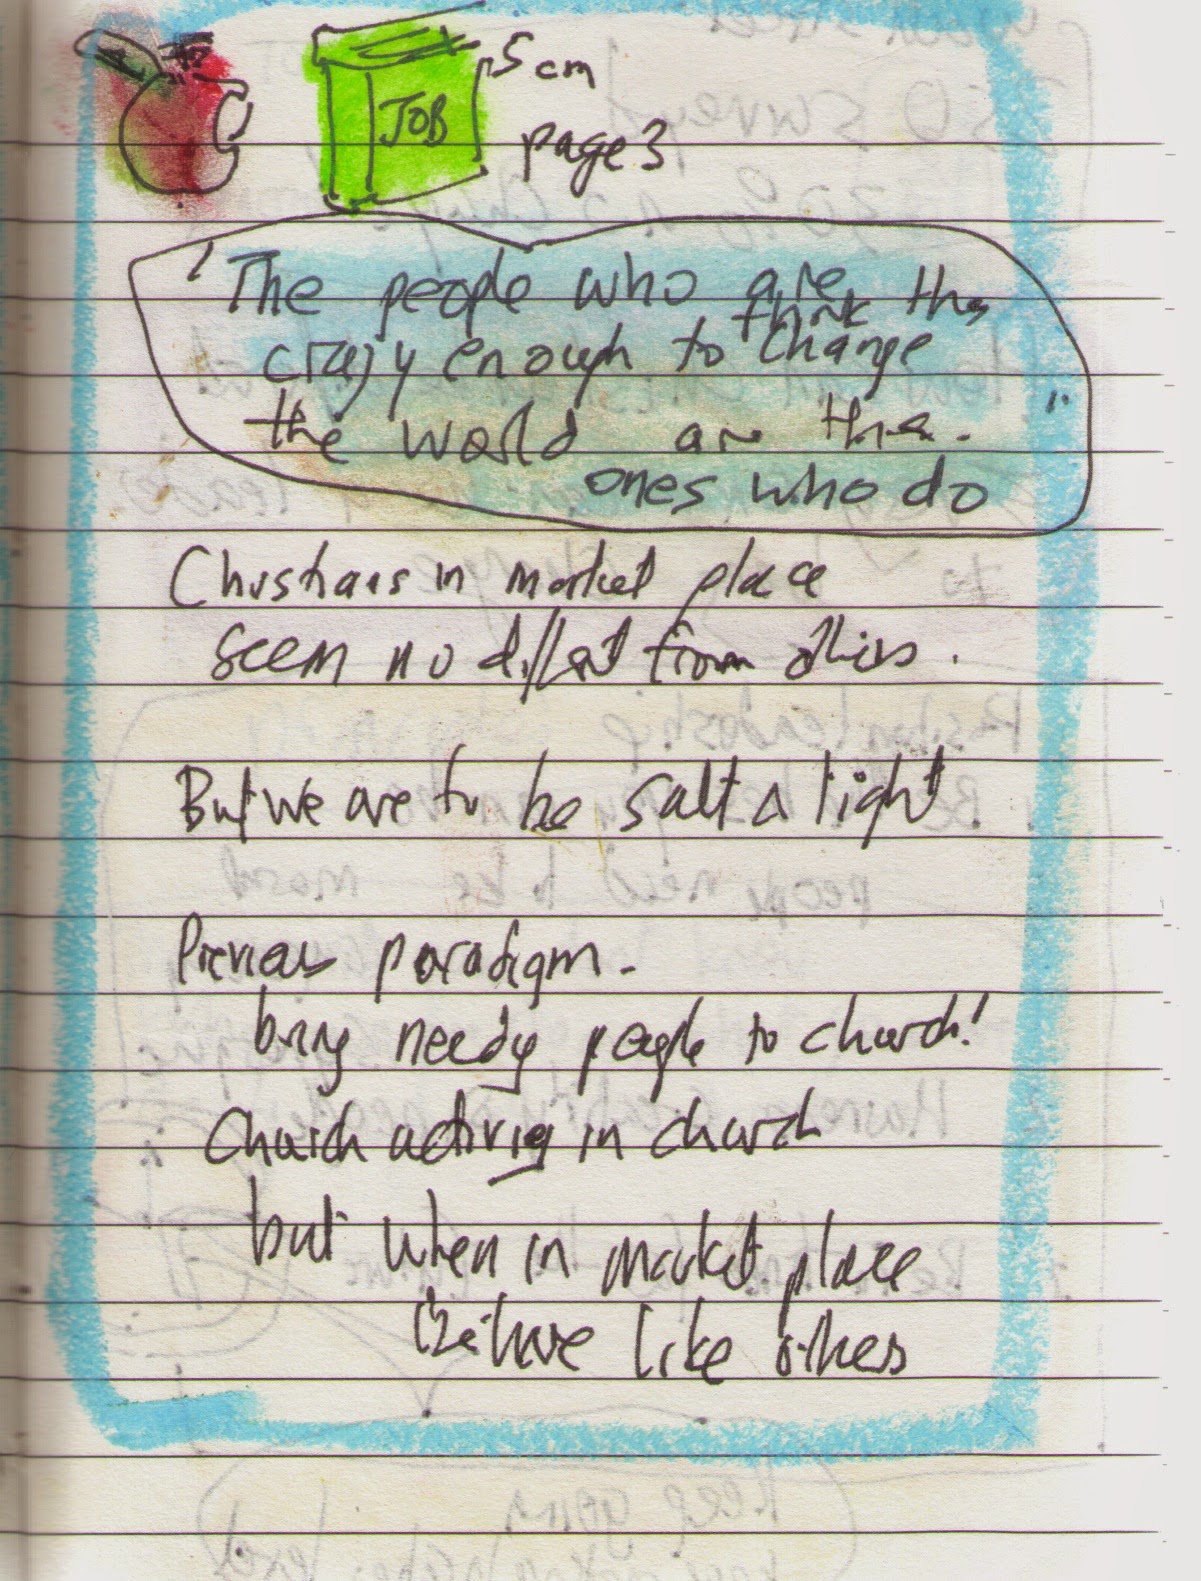 JOB
5 cm
page 3
"The people who are
think the
crazy enough to change
the world are the.
ones who do"
Christians in market place
seem no diffent from others.
But we are to be salt & light
Previous paradigm.
bring needy people to church!
Church activity in church
but when in market place
Behave like others